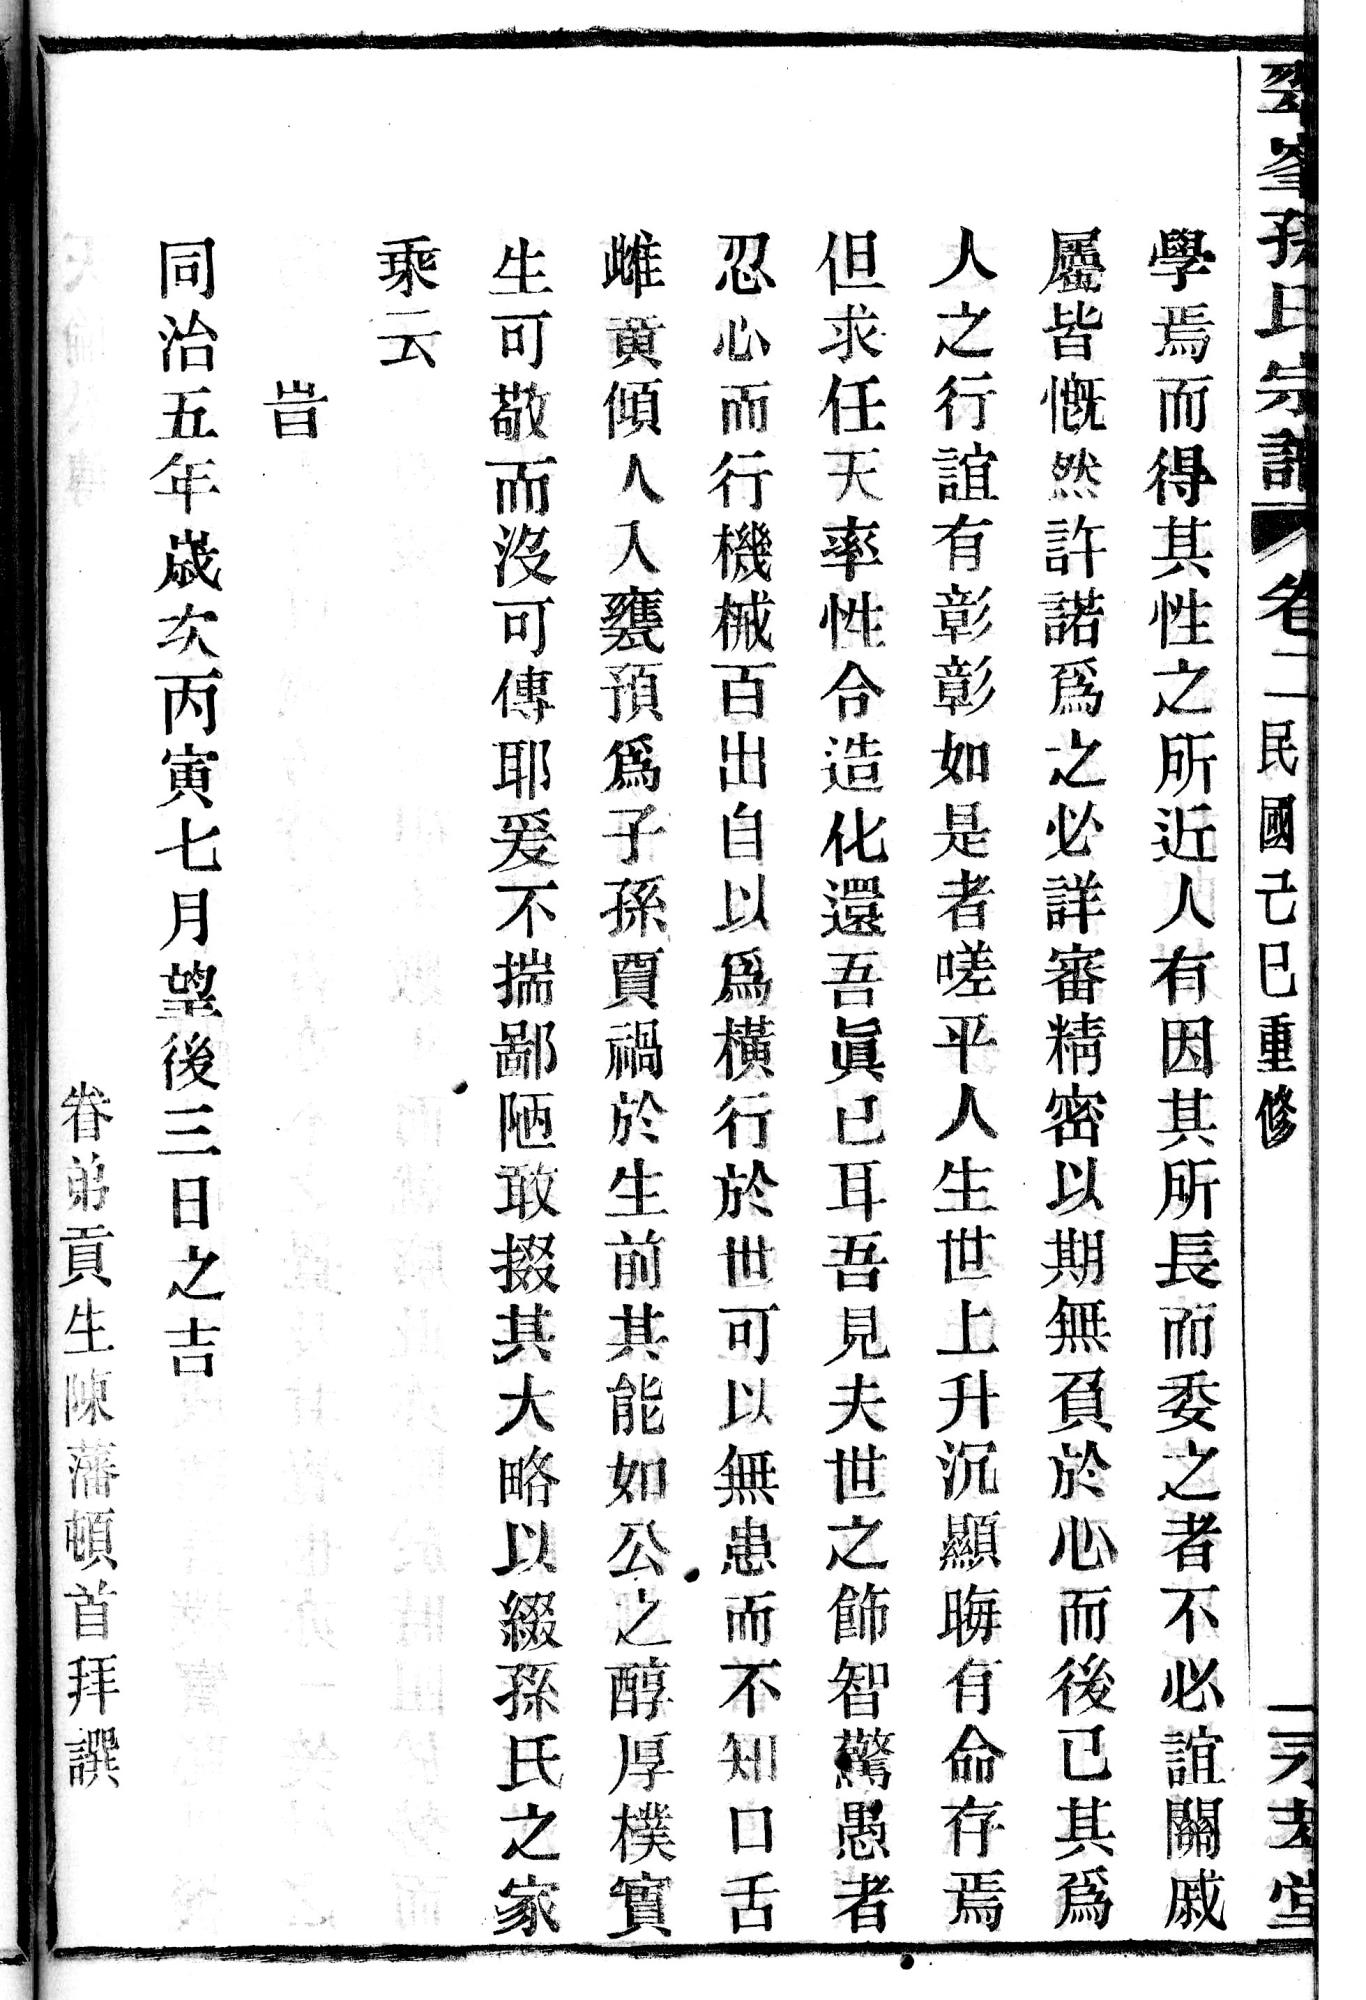 峯孫氏宗譜 卷二 民國己巳重修 堂
學焉而得其性之所近人有因其所長而委之者不必誼關戚
屬皆慨然許諾爲之必詳審精密以期無負於心而後已其爲
人之行誼有彰彰如是者嗟乎人生世上升沉顯晦有命存焉
但求任天率性合造化還吾眞已耳吾見夫世之飾智驚愚者
忍心而行機械百出自以爲橫行於世可以無患而不知口舌
雌黄傾人入甕預爲子孫賈禍於生前其能如公之醇厚樸實
生可敬而沒可傳耶爰不揣鄙陋敢掇其大略以綴孫氏之家
乘云
旹
同治五年歲次丙寅七月望後三日之吉
眷弟貢生陳藩頓首拜譔